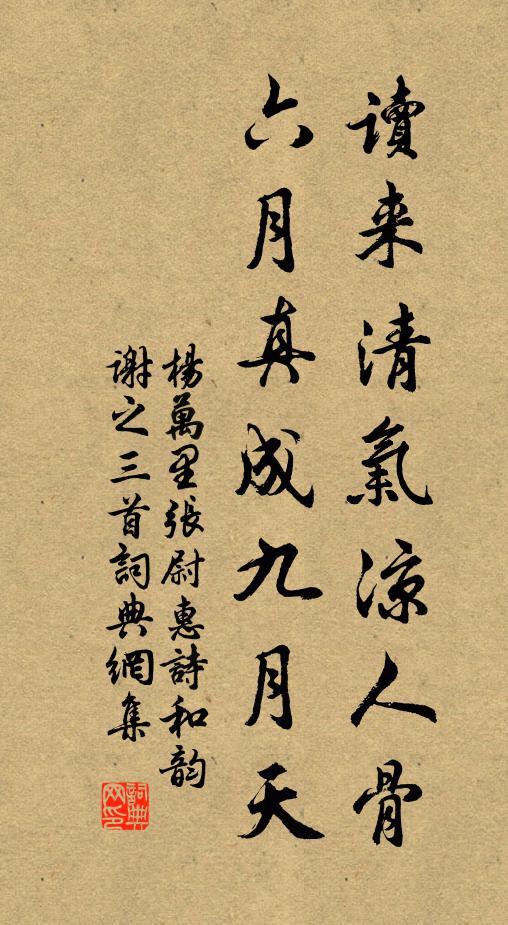 讀来清氣凉人骨
六月真成九月天
楊萬里張尉惠詩和韵
謝之三首詞典網集
詞典
网印